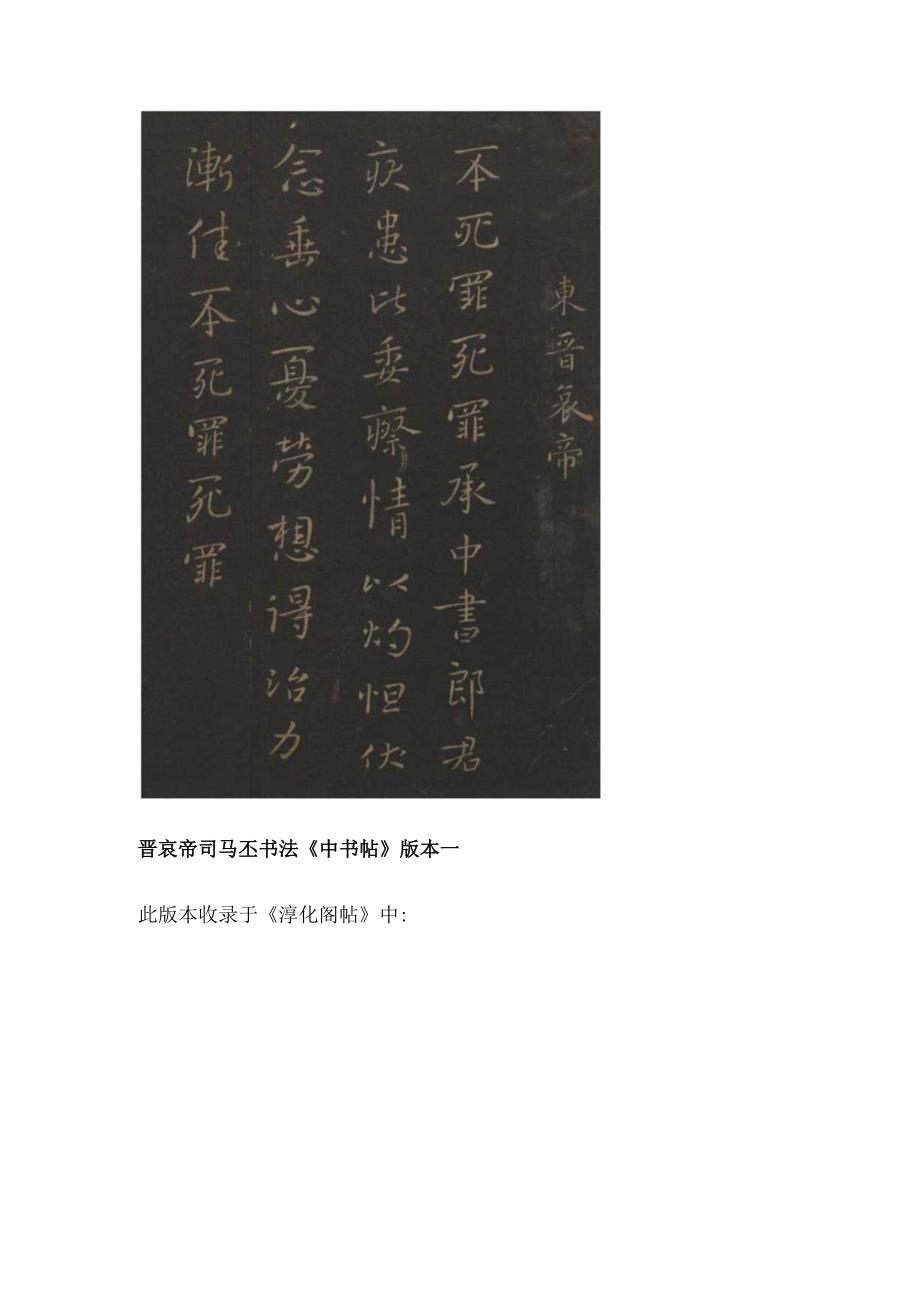 東晋哀帝
丕死罪死罪承中書郎君
疾患比委瘵情以灼怛伏
念垂心憂勞想得治力
漸佳丕死罪死罪
晋哀帝司马丕书法《中书帖》版本一
此版本收录于《淳化阁帖》中: